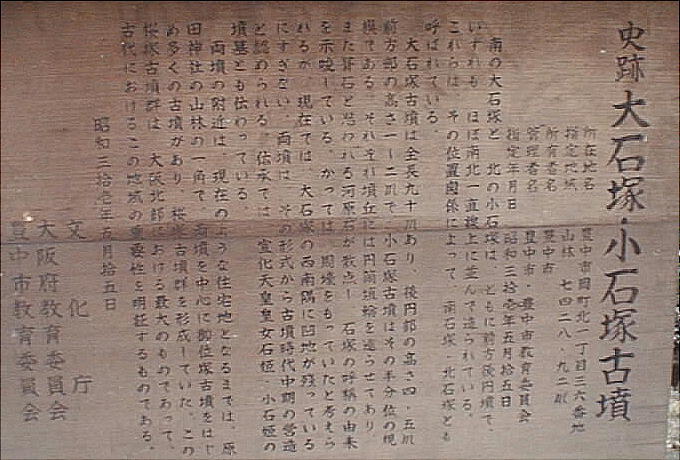 史跡 大石塚・小石塚古墳
所在地名 豊中市岡町北一丁目三六番地
指定地域 山林 七四二八・九二㎡
所有者名 豊中市
管理者名 豊中市・豊中市教育委員会
指定年月日 昭和三拾壱年五月拾五日
南の大石塚と 北の小石塚は、ともに前方後円墳で、
いずれも ほぼ南北一直線上に並んで造られている。
これらは その位置関係によって 南石塚・北石塚とも
呼ばれている。
大石塚古墳は全長九十㎡あり、後円部の高さ四・五㎡
前方部の高さ一―二㎡で、小石塚古墳はその半分位の規
模である。それぞれ墳丘には円筒埴輪を造らせてあり、
また葺石と思われる河原石が散点し 石塚の呼称の由来
を示唆している。かっては、周壕をもっていたと考えら
れるが、現在では、大石塚の西南隅に凹地が残っている
にすぎない。両墳は その形式から古墳時代中期の営造
と認められる。伝承では 宣化天皇皇女石姫・小石姫の
墳墓とも伝わっている。
両墳の附近は、現在のような住宅地となるまでは、原
田神社の山林の一角で 両墳を中心に御位塚古墳をはじ
め多くの古墳があり 桜塚古墳群を形成していた。この
桜塚古墳群は 大阪北部における最大のものであって、
古代におけるこの地域の重要性を明証するものである。
昭和三拾壱年五月拾五日
文化庁
大阪府教育委員会
豊中市教育委員会